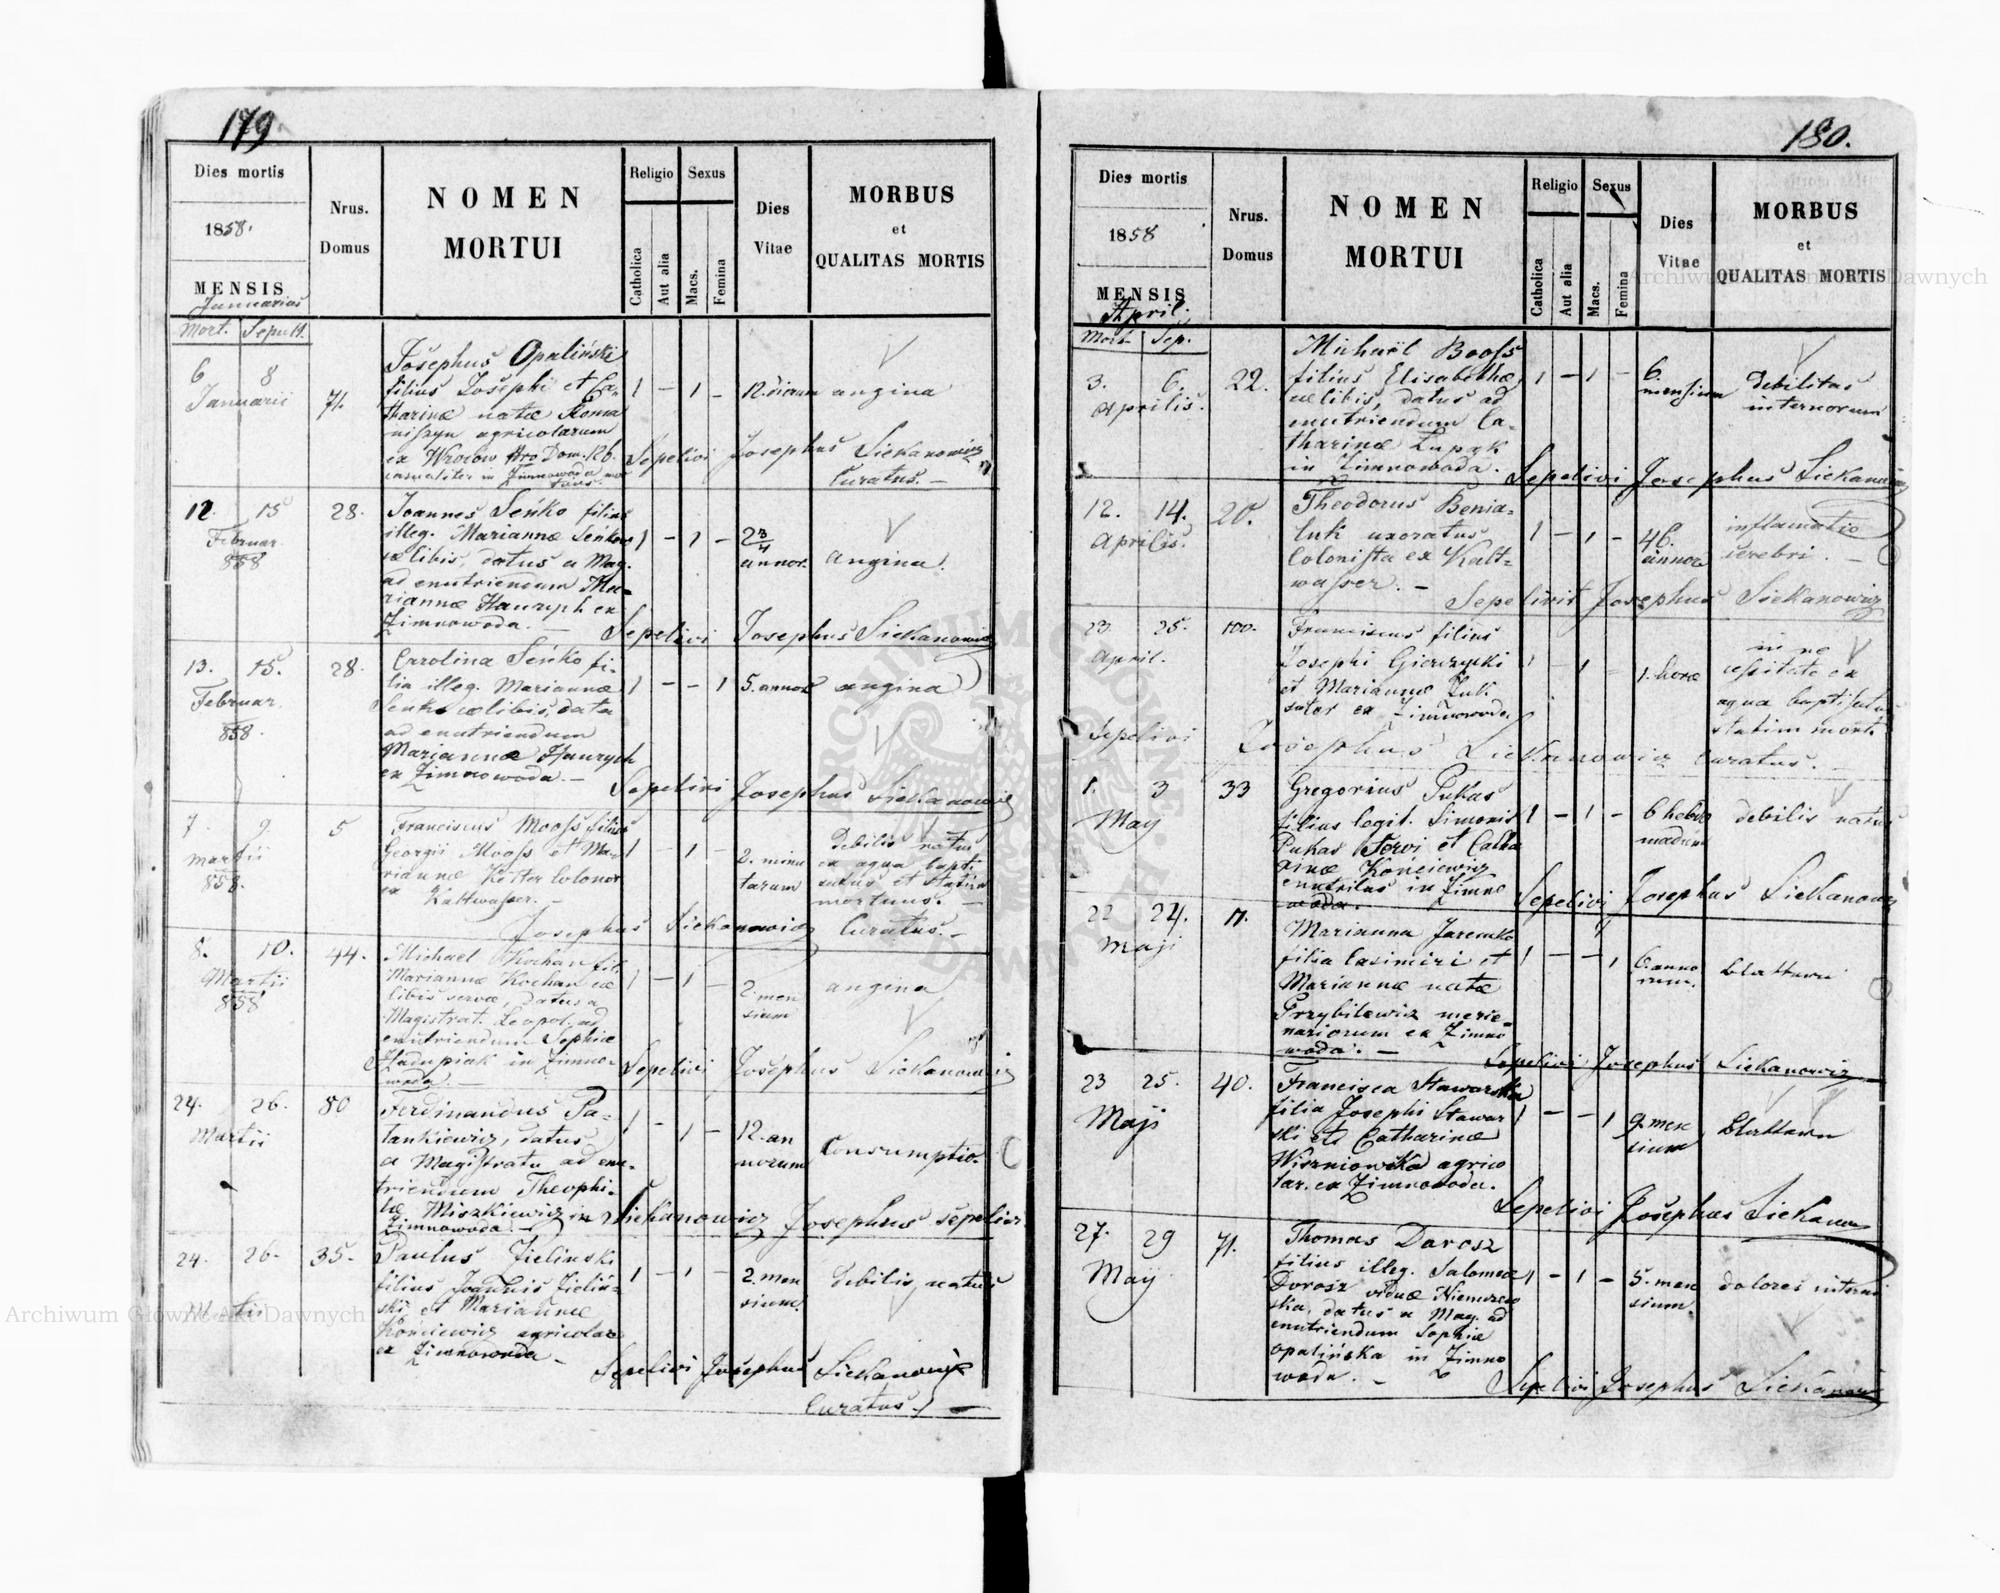 179.
Dies mortis
1858.
MENSIS
Januarius
Mort. Sepult.
Nrus.
Domus
NOMEN
MORTUI
Religio
Sexus
Catholica
Aut alia
Macs.
Femina
Dies
Vitae
MORBUS
et
QUALITAS MORTIS
6 8
Januarii
71.
Josephus Opaliński
filius Josephi et Ca-
tharinæ natæ Roma
agricolarum
ex Wroców Nro Dom. 126.
in Zimnowoda
1 – 1
12. dierum
angina
Sepelivi Josephus Siekanowicz
Curatus. –
12. 15
Februar.
858
28.
Joannes Seńko filius
illeg. Mariannæ Seńkow
cælibis, datus a Mag.
ad enutriendum Ma-
riannæ Hawrych ex
Zimnowoda. –
1 – 1 –
2 3/4
annor.
angina.
Sepelivi Josephus Siekanowicz
13. 15.
Februar.
858.
28.
Carolina Seńko fi-
lia illeg. Mariannæ
Senko cælibis, data
ad enutriendum
Mariannæ Hawrych
ex Zimnowoda. –
1 – – 1
5. annor
angina
Sepelivi Josephus Siekanowicz
7. 9.
martii
858.
5
Franciscus Mooss filius
Georgii Mooss et Ma-
riannæ Ketter Colonor
ex Kaltwasser. –
1 – 1 –
2. minu
tarum
Debilis natus
ex aqua bapti
satus et statim
mortuus. –
Josephus Siekanowicz Curatus. –
8. 10.
Martii
858
44.
Michael Kochan fil.
Mariannæ Kochan cæ
libis servæ, datus a
Magistrat. Leopol. ad
enutriendum Sophiæ
Hadupiak in Zimno-
woda. –
1 – 1 –
2. men
sium
angina
Sepelivi Josephus Siekanowicz
24. 26.
Martii
80
Ferdinandus Pa-
tankiewicz, datus
a Magistratu ad enu-
triendum Theophi-
læ Miszkiewicz in
Zimnowoda. –
1 – 1 –
12. an
norum
Consumptio.
Siekanowicz Josephus sepelivi
24. 26.
35.
Paulus Zieliński
filius Joannis Zieliń-
ski et Mariannæ
Końciewicz agricolar
ex Zimnowoda –
1 – 1 –
2. men
sium.
debilis natus
Sepelivi Josephus Siekanowicz
Curatus. –
180.
Dies mortis
1858
MENSIS
April.
Mort. Sep.
Nrus.
Domus
NOMEN
MORTUI
Religio
Sexus
Catholica
Aut alia
Macs.
Femina
Dies
Vitae
MORBUS
et
QUALITAS MORTIS
3. 6.
Aprilis.
22.
Michaël Booss
filius Elisabethæ
cælibis, datus ad
enutriendum Ca-
tharinæ Łupak
in Zimnowoda.
1 – 1 –
6.
mensium
debilitas
internorum
Sepelivi Josephus Siekanowicz
12. 14.
Aprilis.
20.
Theodorus Benia-
luk uxoratus
Colonista ex Kalt-
wasser. –
1 – 1 –
46.
annor
inflamatio
cerebri. –
Sepelivit Josephus Siekanowicz
23 25.
April.
100.
Franciscus filius
Josephi
et Mariannæ Zuk.
ex Zimnowoda
1 1
1. horæ
in ne
cessitate ex
aqua baptisatus
statim mort.
Sepelivi Josephus Siekanowicz Curatus. –
1. 3
May
33
Gregorius Pukas
filius legit. Simonis
Pukas Servi et Catha
rinæ Końciewicz
enutritus in Zimno
woda.
1 – 1 –
6 hebdo
madum
debilis natus
Sepelivi Josephus Siekanowicz
22 24.
Maji
11.
Marianna Jaremko
filia Casimiri et
Mariannæ natæ
Przybilewicz merce-
nariorum ex Zimno
woda. –
1 – – 1
6. anno
rum.
Blattern
Sepelivi Josephus Siekanowicz
23 25.
Maji
40.
Francisca Stawarska
filia Josephi Stawar
ski et Catharinæ
Wiszniowska agrico
lar. ex Zimnowoda.
1 – – 1
9. men
sium
Blattern
Sepelivi Josephus Siekanow
27. 29
May
71.
Thomas Darosz
filius illeg. Salomeæ
Dorosz viduæ
ska, datus a Mag. ad
enutriendum Sophiæ
Opalińska in Zimno
woda. –
1 – 1 –
5. men
sium.
dolores interni
Sepelivi Josephus Siekanowicz
Archiwum Główne Akt Dawnych
Archiwum Główne Akt Dawnych
ARCHIWUM GŁÓWNE AKT DAWNYCH